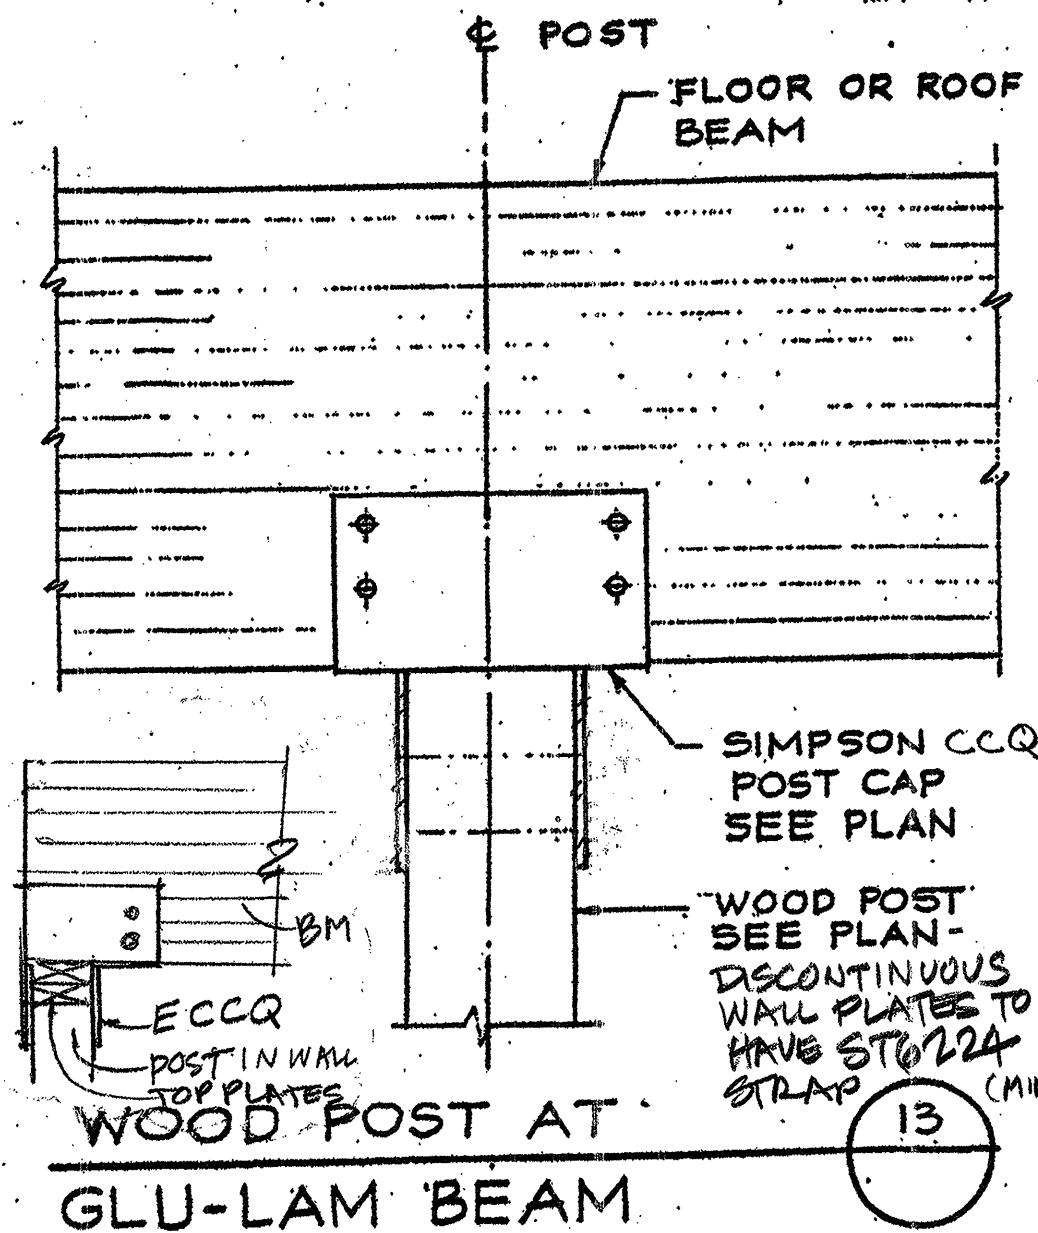 ℄ POST
FLOOR OR ROOF
BEAM
SIMPSON CCQ
POST CAP
SEE PLAN
WOOD POST
SEE PLAN-
DISCONTINUOUS
WALL PLATES TO
HAVE ST6224
STRAP (MIN
BM
ECCQ
POST IN WALL
TOP PLATES
WOOD POST AT
GLU-LAM BEAM
13